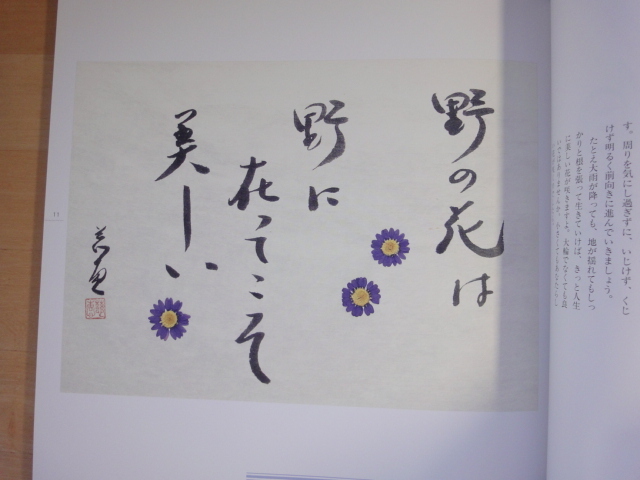 す。周りを気にし過ぎずに、いじけず、くじ
けず明るく前向きに進んでいきましょう。
たとえ大雨が降っても、地が揺れてもしっ
かりと根を張って生きていけば、きっと人生
に美しい花が咲きますよ。大輪でなくても良
野の花は
野に
在ってこそ
美しい